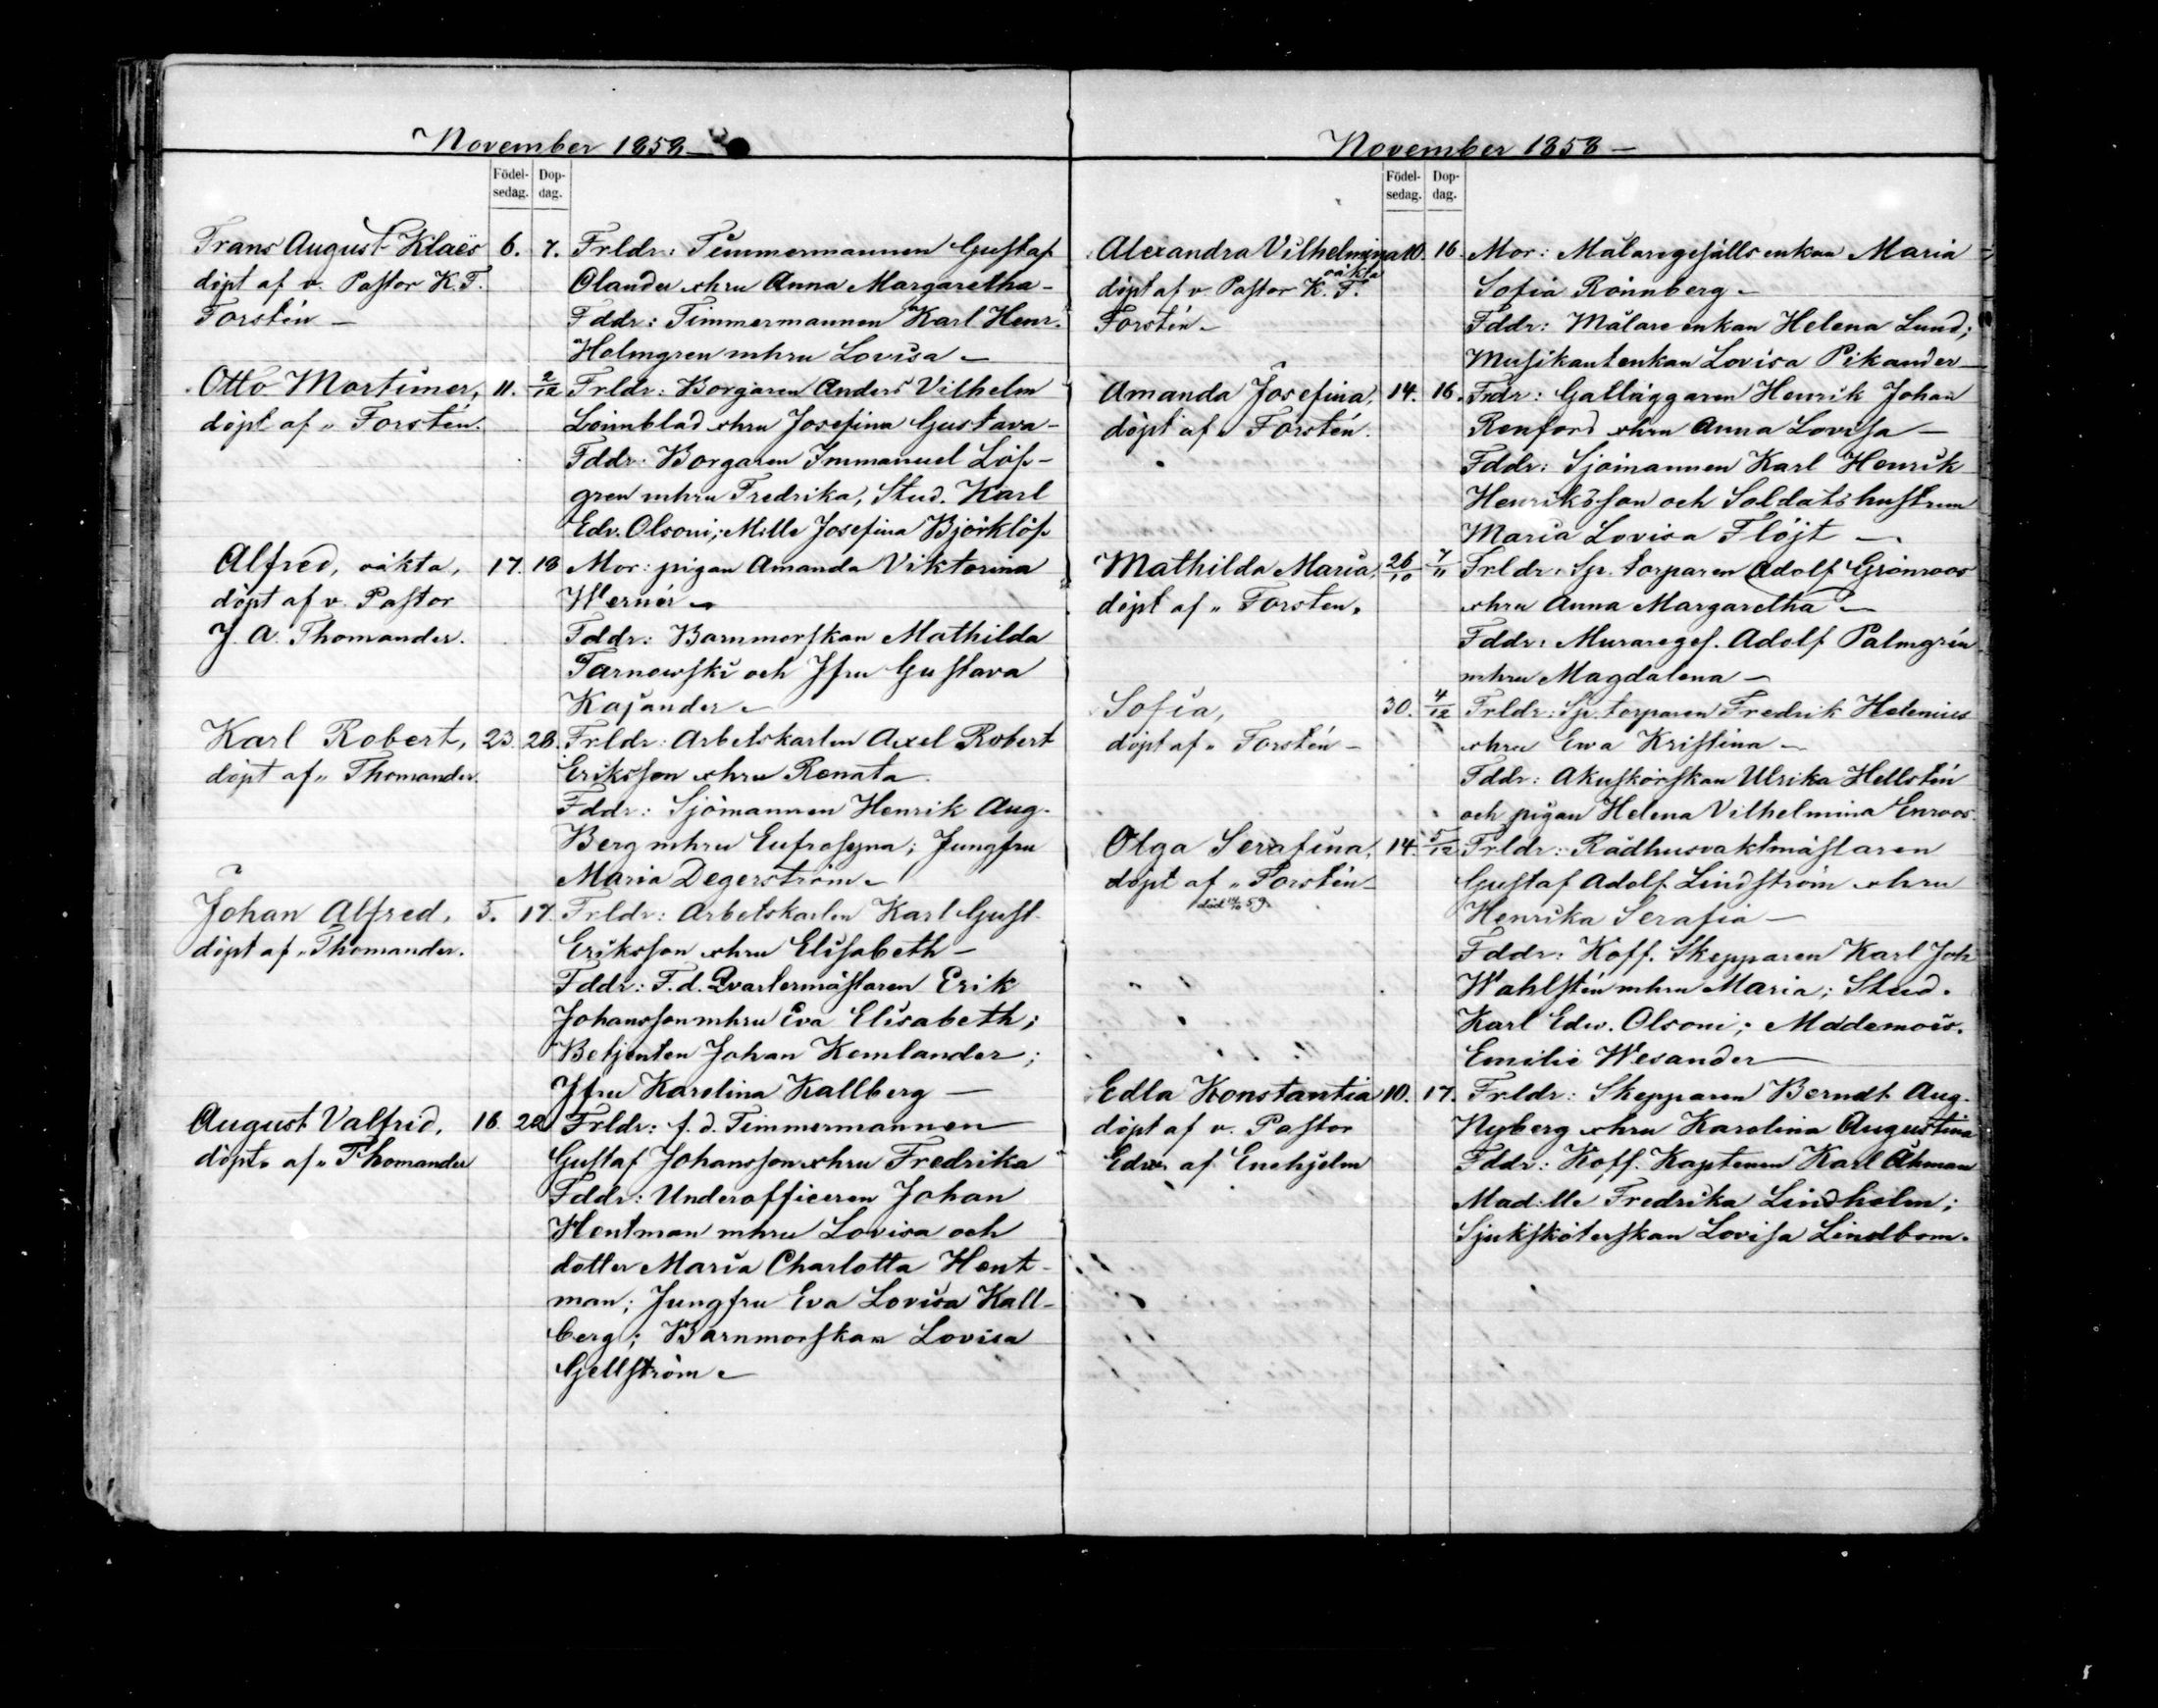 November 1858 —
Födel- Dop-
sedag. dag.
Frans August Klaës 6. 7. Frldr: Timmermannen Gustaf
döpt af v. Pastor K. F. Olander o hru Anna Margaretha –
Forstén – Fddr: Timmermannen Karl Henr.
Holmgren m hru Lovisa –
Otto Mortimer, 11. 2/12 Frldr: Borgaren Anders Vilhelm
döpt af „ Forstén. Lönnblad o hru Josefina Gustava –
Fddr: Borgaren Immanuel Löf-
gren m hru Fredrika, Stud. Karl
Edv. Olsoni; Mille Josefina Björklöf.
Alfred, oäkta, 17. 18 Mor: pigan Amanda Viktorina
döpt af v. Pastor Wernér –
J. A. Thomander. Fddr: Barnmorskan Mathilda
Tarnowski och Jfru Gustava
Kajander –
Karl Robert, 23. 28. Frldr: Arbetskarlen Axel Robert
döpt af „ Thomander. Eriksson o hru Renata.
Fddr: Sjömannen Henrik Aug.
Berg m hru Eufrosyna; Jungfru
Maria Degerström –
Johan Alfred, 5. 17. Frldr: Arbetskarlen Karl Gust.
döpt af „ Thomander. Eriksson o hru Elisabeth –
Fddr: F. d. Qvartermästaren Erik
Johansson m hru Eva Elisabeth;
Betjenten Johan Kemlander;
Jfru Karolina Kallberg –
August Valfrid, 16. 28 Frldr: f. d. Timmermannen
döpt. af „ Thomander Gustaf Johansson o hru Fredrika
Fddr: Underofficeren Johan
Hentman m hru Lovisa och
dotter Maria Charlotta Hent-
man; Jungfru Eva Lovisa Kall-
berg; Barnmorskan Lovisa
Gellström –
November 1858 –
Födel- Dop-
sedag. dag.
Alexandra Vilhelmina 10. 16. Mor: Målaregesällsenkan Maria
oäkta
döpt af v. Pastor K. F. Sofia Rönnberg –
Forstén – Fddr: Målareenkan Helena Lund;
Musikantenkan Lovisa Pikander –
Amanda Josefina, 14. 16. Frdr: Gatläggaren Henrik Johan
döpt af „ Forstén. Renford o hru Anna Lovisa –
Fddr: Sjömannen Karl Henrik
Henriksson och Soldatshustrun
Maria Lovisa Flöjt –
Mathilda Maria, 26/10 7/11 Frldr: Sp. torparen Adolf Grönroos
döpt af „ Forstén. o hru Anna Margaretha –
Fddr: Muraregef. Adolf Palmgrén
m hru Magdalena –
Sofia, 30. 4/12 Frldr: Sp. torparen Fredrik Helenius
döpt af „ Forstén – o hru Ewa Kristina –
Fddr: Akuskörskan Ulrika Hellstén
och pigan Helena Vilhelmina Enroos.
Olga Serafina, 14. 5/12 Frldr: Rådhusvaktmästaren
döpt af „ Forstén – Gustaf Adolf Lindström o hru
död 59. Henrika Serafia –
Fddr: Koff. Skepparen Karl Joh
Wahlstén m hru Maria; Stud.
Karl Edw. Olsoni; Mademois.
Emilie Wesander –
Edla Konstantia 10. 17. Frldr: Skepparen Berndt Aug.
döpt af v. Pastor Nyberg o hru Karolina Augustina
Edw. af Enehjelm Fddr: Koff. Kaptenen Karl Åhman
Mad:lle Fredrika Lindholm;
Sjuksköterskan Lovisa Lindbom.